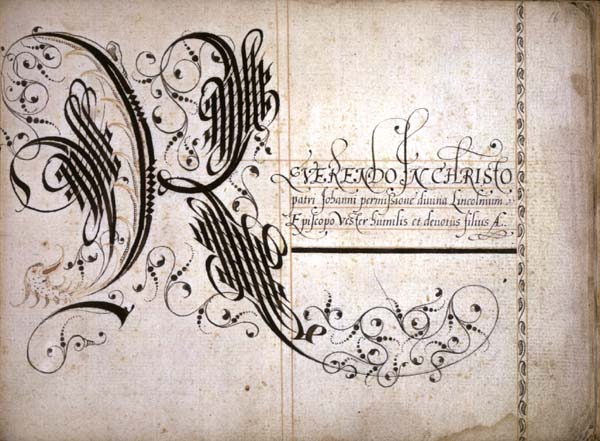 16
REVERENDO IN CHRISTO
patri Johanni permissione divina Lincolnium
Episcopo Vester humilis et devotus filius Æ.